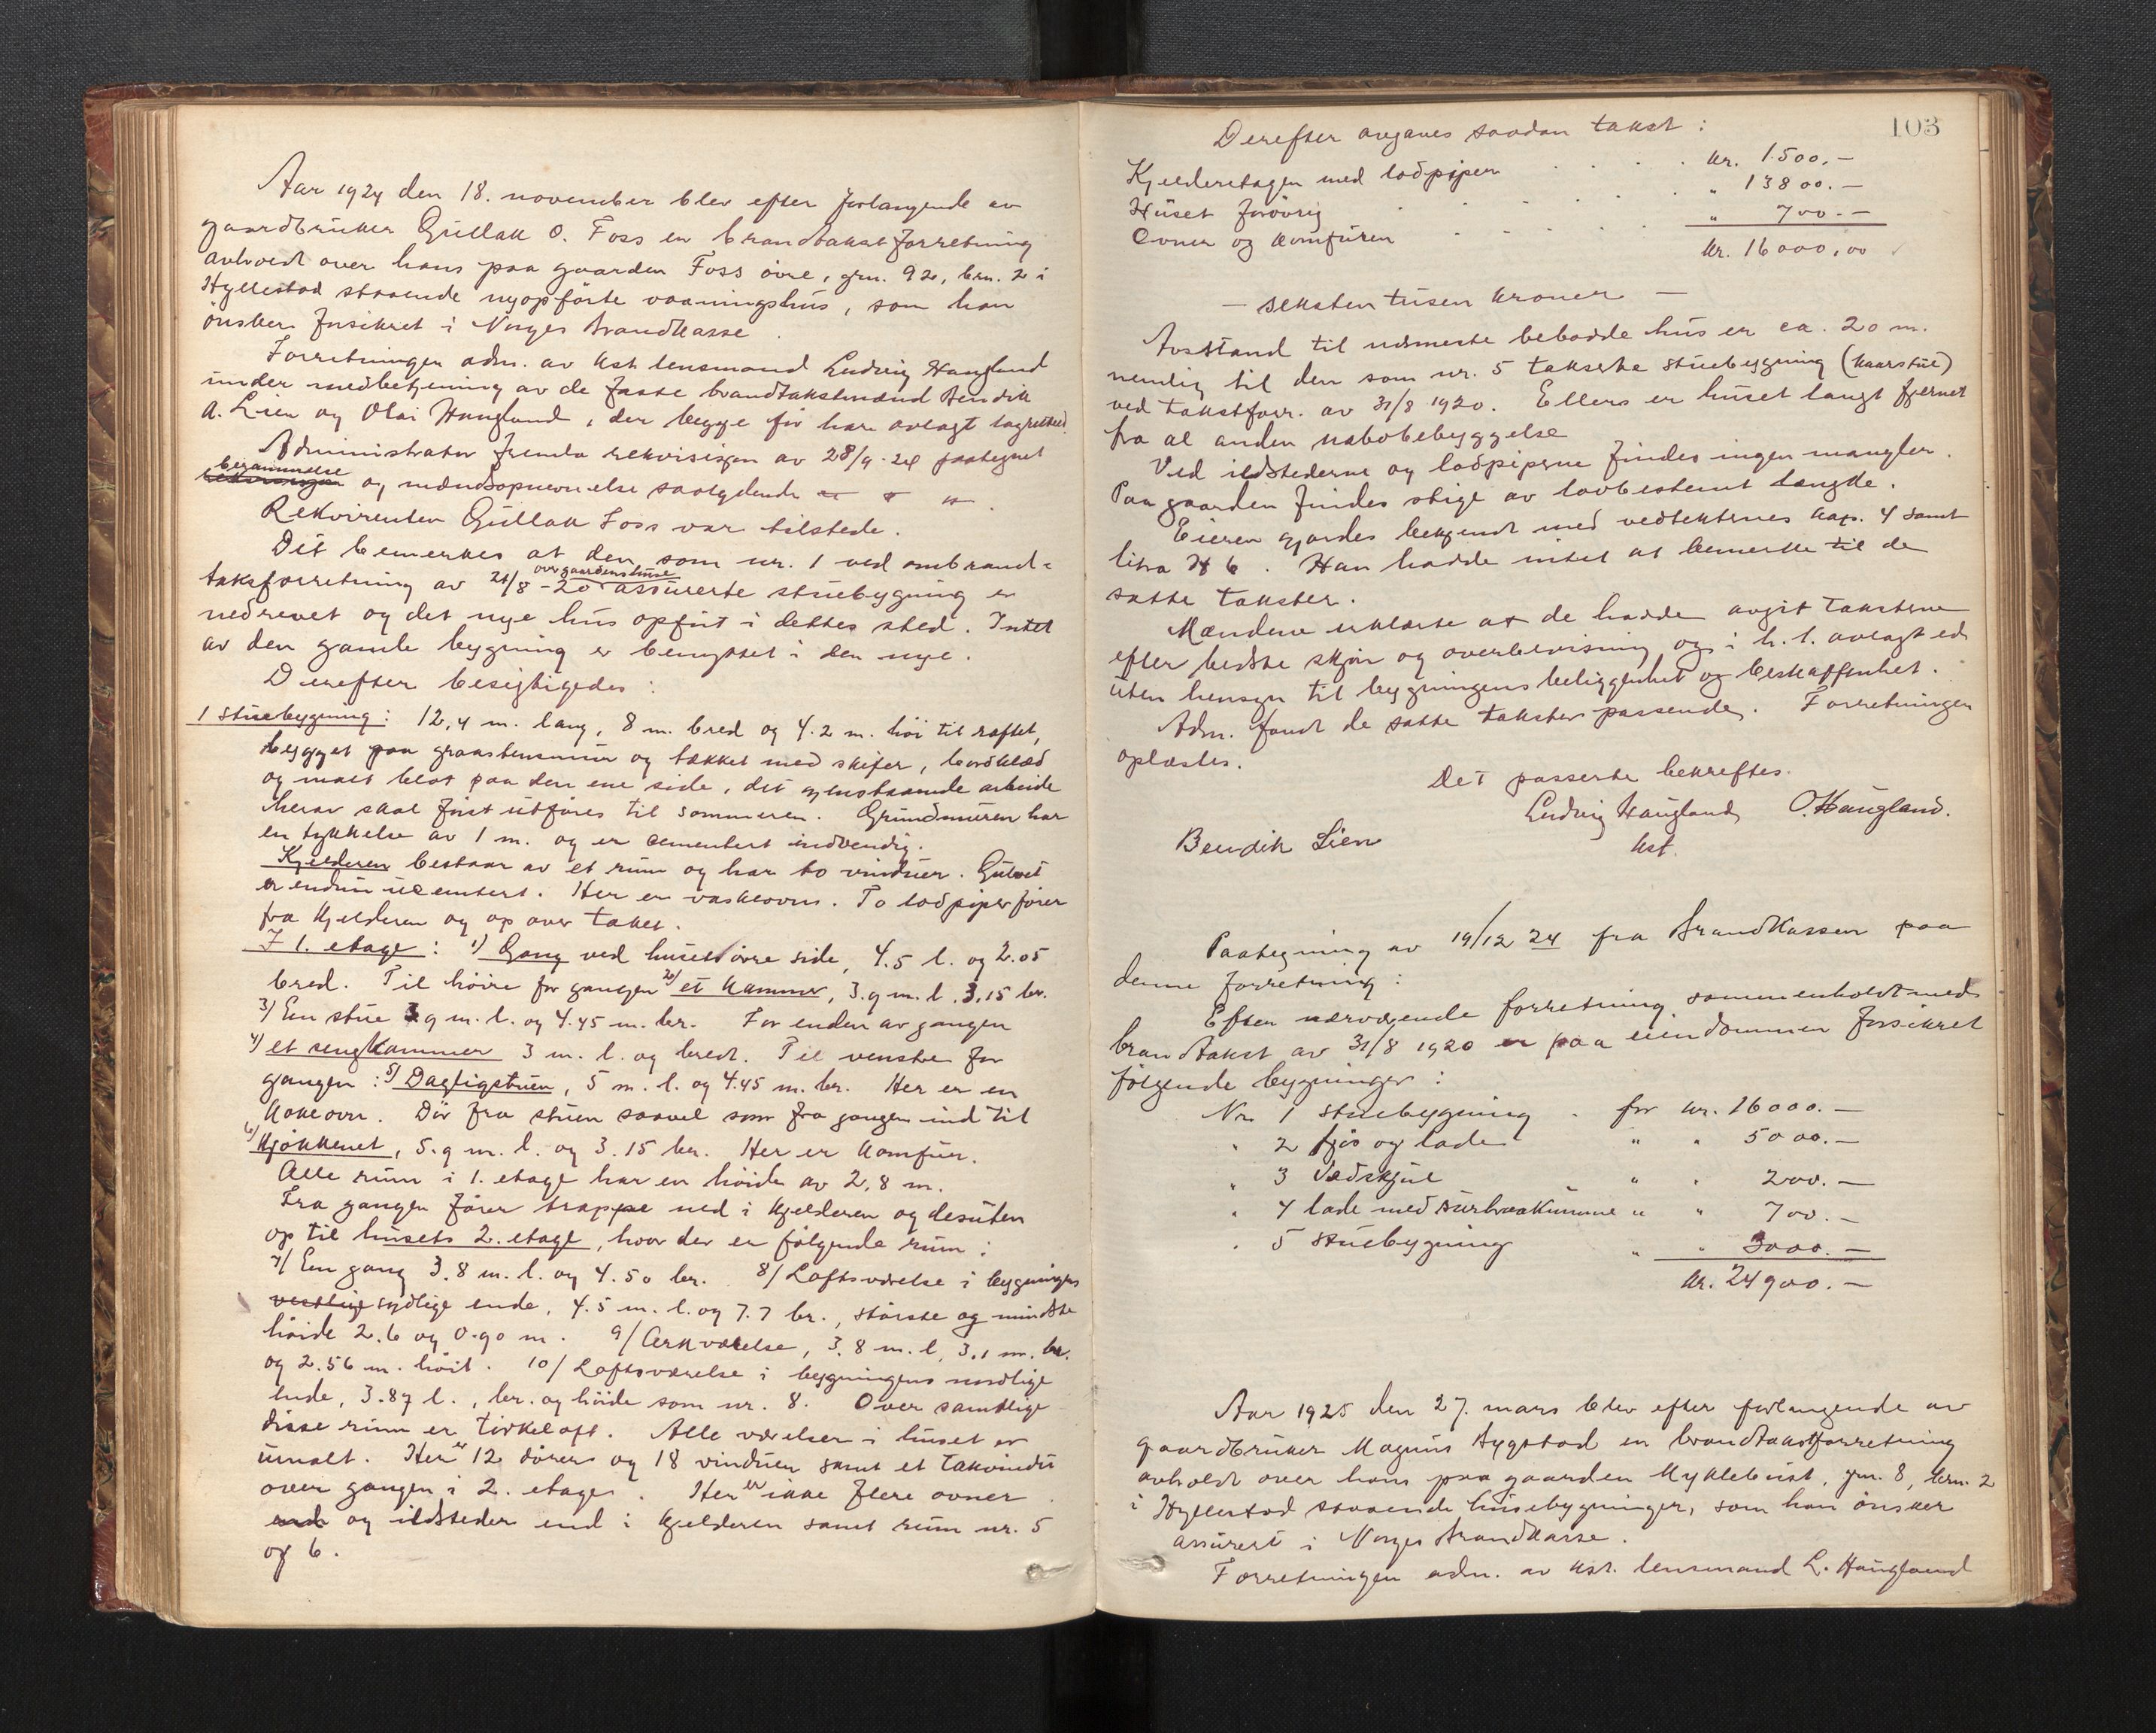 Aar 1924 den 18. november blev efter forlangende av
gaardbruker Gullak O. Foss en brandtakstforretning
avholdt over hans paa gaarden Foss övre, grn. 92, brn. 2 i
Hyllestad staaende nyopförte vaaningshus, som han
önsker forsikret i Norges Brandkasse.
Forretningen adm. av kst. lensmand Ludvig Haugland
under medbetjening av de faste brandtakstmænd Bendik
A. Lien og Olai Haugland, der begge för har avlagt lagretteed.
Administrator fremla rekvisisjon av 28/9-24 paategnet
berammelse
og mændsopnevnelse saalydende
Rekvirenten Gullak Foss var tilstede.
Det bemerkes at den som nr. 1 ved ombrand-
over gaardens huse
takstforretning av 31/8-20 assurerte stuebygning er
nedrevet og det nye hus opfört i dettes sted. Intet
av den gamle bygning er benyttet i den nye.
Derefter besigtigedes:
1 Stuebygning: 12,4 m. lang, 8 m. bred og 4.2 m. höi til raftet,
bygget paa graastensmur og tækket med skifer, bordklæd
og malt blot paa den ene side, det gjenstaaende arbeide
herav skal först utföres til sommeren. Grundmuren har
en tykkelse av 1 m. og er cementert indvendig.
Kjelderen bestaar av et rum og har to vinduer. Gulvet
er endnu ucementert. Her er vaskeovn. To lodpiper förer
fra kjelderen og op over taket.
I 1. etage: 1) Gang ved husets övre side, 4.5 l. og 2.05
bred. Til höire for gangen 2) et kammer, 3.9 m. l. 3.15 br.
3) En stue 3.9 m. l. og 4.45 m. br. For enden av gangen
4) et sengkammer 3 m. l. og bredt. Til venstre for
gangen: 5) Dagligstuen, 5 m. l. og 4.45 m. br. Her er en
kokeovn. Dör fra stuen saavel som fra gangen ind til
6) Kjökkenet, 5.9 m. l. og 3.15 br. Her er komfur.
Alle rum i 1. etage har en höide av 2,8 m.
Fra gangen förer trappe ned i kjelderen og desuten
op til husets 2. etage, hvor der er fölgende rum:
7/ En gang 3.8 m. l. og 4.50 br. 8/ Loftsværelse i bygningens
vestlige sydlige ende, 4.5 m. l. og 7.7 br., störste og mindste
höide 2.6 og 0.90 m. 9/ Arkværelse, 3.8 m. l, 3,1 m. br.
og 2.56 m. höit. 10/ Loftsværelse i bygningens nordlige
ende, 3.87 l., br. og höide som nr. 8. Over samtlige
disse rum er törkeloft. Alle værelser i huset er
umalt. Her er 12 dörer og 18 vinduer samt et takvindu
over gangen i 2. etage. Her er ikke flere ovner
end og ildsteder end i kjelderen samt rum nr. 5
og 6.
103
Derefter avgaves saadan takst:
Kjelderetagen med lodpiper . . . . kr. 1500.-
Huset forövrig . . . . " 13800.-
Ovner og komfuren . . . . " 700.-
kr. 16000,00
- seksten tusen kroner -
Avstand til nærmeste bebodde hus er ca. 20 m.
nemlig til den som nr. 5 takserte stuebygning (kaarstue)
ved takstforr. av 31/8 1920. Ellers er huset langt fjernet
fra al anden nabobebyggelse
Ved ildstederne og lodpiperne findes ingen mangler.
Paa gaarden findes stige av lovbestemt længde.
Eieren gjordes bekjendt med vedtekternes kap. 4 samt
litra H 6. Han hadde intet at bemerke til de
satte takster.
Mændene erklærte at de hadde avgit taksterne
efter bedste skjön og overbevisning og i h. t. avlagt ed
uten hensyn til bygningens beliggenhet og beskaffenhet.
Adm. fandt de satte takster passende. Forretningen
oplæstes.
Det passerte bekreftes.
Ludvig Haugland O. Haugland.
Bendik Lien kst.
Paategning av 19/12 24 fra Brandkassen paa
denne forretning:
Efter nærværende forretning sammenholdt med
brandtakst av 31/8 1920 er paa eiendommen forsikret
fölgende bygninger:
Nr. 1 Stuebygning . for kr. 16000.-
" 2 fjös og lade " " 5000.-
" 3 Vedskjul " " 200.-
" 4 lade med surbraakumme " " 700.-
" 5 Stuebygning " " 3000.-
kr. 24900.-
Aar 1925 den 27. mars blev efter forlangende av
gaardbruker Magnus Sygstad en brandtakstforretning
avholdt over hans paa gaarden Myklebust, grn. 8, brn. 2
i Hyllestad staaende husebygninger, som han önsker
assurert i Norges Brandkasse.
Forretningen adm. av kst. lensmand L. Haugland